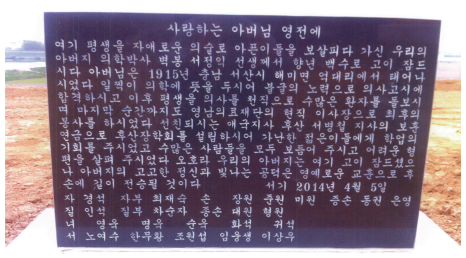 사랑하는 아버님 영전에
여기 평생을 자애로운 의술로 아픈이들을 보살피다 가신 우리의
아버지 의학박사 벽봉 서정의 선생께서 향년 백수로 고이 잠드
시다 아버님은 1915년 충남 서산시 해미면 억대리에서 태어나
시었다 일찍이 의학에 뜻을 두시어 불굴의 노력으로 의사고시에
합격하시고 이후 평생을 의사를 천직으로 수많은 환자를 돌보시
며 마지막 순간까지도 남의료재단의 현직 이사장으로 최후의
봉사를 하시었다 선친되시는 애국지사 후산 서병철 지사의 보훈
연금으로 후산장학회를 설립하시어 가난한 젊은이들에게 학업의
기회를 주시었고 수많은 사람들을 모두 보듬어 주시고 어려운 형
편을 살펴 주시었다 오호라 우리의 아버지는 여기 고이 잠드셨으
나 아버지의 고고한 정신과 빛나는 공덕은 영예로운 교훈으로 후
손에 길이 전승될 것이다 서기 2014년 4월 5일
자 경석 자부 최재숙 손 장원 준원 미원 증손 동권 은영
질 인석 질부 차순자 종손 대원 형원
녀 영옥 명옥 순옥 화석 귀석
서 노여수 한무황 조원섭 임용생 이상우